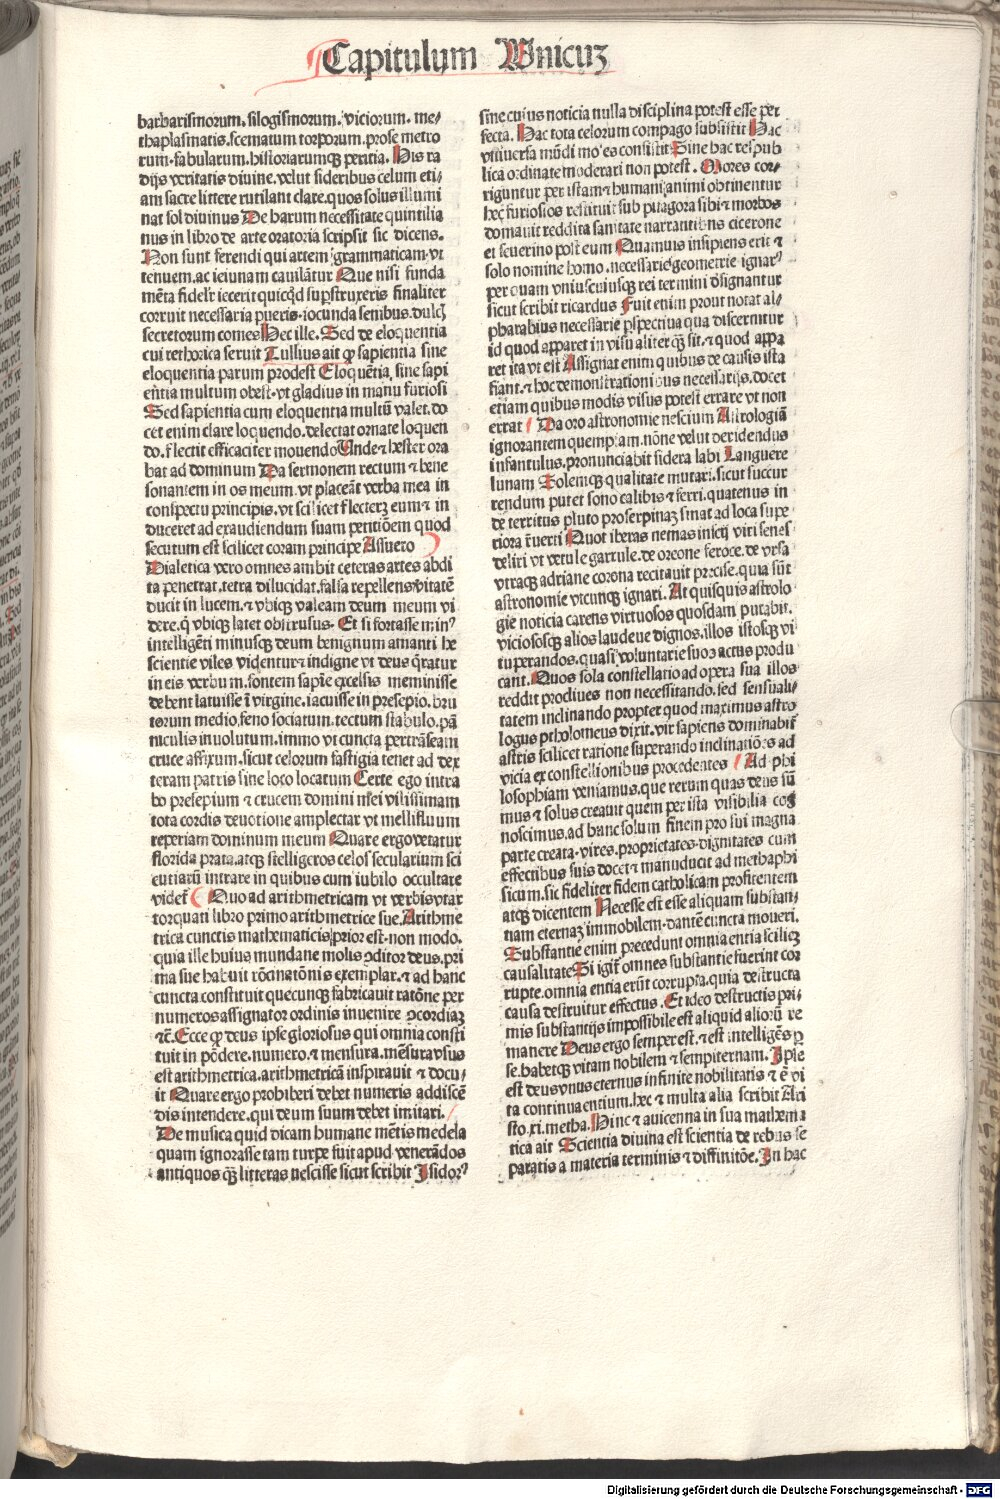 Capitulum Vnicuʒ
barbarismorum. silogismorum. viciorum. me⸗
thaplasmatis. scematum torporum. prose metro
rum. fabularum. historiarumqꝫ peritia. His ra
dijs veritatis diuine. velut sideribus celum eti⸗
am sacre littere rutilant clare. quos solus illumi
nat sol diuinus De harum necessitate quintilia
nus in libro de arte oratoria scripsit sic dicens.
Non sunt ferendi qui artem grammaticam. vt
tenuem. ac ieiunam cauilātur Que nisi funda
mēta fidełr iecerit quicqͥd suꝑstruxeris finaliter
corruit necessaria pueris. iocunda senibus. dulcꝫ
secretorum comes Hec ille. Sed de eloquentia
cui rethorica seruit Tullius ait ꝙ sapientia sine
eloquentia parum prodest Eloquētia, sine sapi
entia multum obest. vt gladius in manu furiosi
Sed sapientia cum eloquentia multū valet. do
cet enim clare loquendo. delectat ornate loquen
do. flectit efficaciter mouendo Vnde ⁊ hester ora
bat ad dominum Da sermonem rectum ⁊ bene
sonantem in os meum. vt placeāt verba mea in
conspectu principis. vt scilicet flecterꝫ eum ⁊ in
duceret ad exaudiendum suam petitiōem quod
secutum est scilicet coram principe Assuero
Dialetica vero omnes ambit ceteras artes abdi
ta penetrat. tetra dilucidat. falsa repellens vitatē
ducit in lucem. ⁊ vbiqꝫ valeam deum meum vi
dere. qͥ vbiqꝫ latet obstrusus. Et si fortasse min⁹
intelligēti minusqꝫ deum benignum amanti he
scientie viles videntur ⁊ indigne vt deus qͥratur
in eis verbum. fontem sapie excelsis meminisse
debent latuisse ī virgine. iacuisse in presepio. bru
torum medio. feno sociatum. tectum stabulo. pā
niculis inuolutum. immo vt cuncta pertrāseam
cruce affixum. sicut celorum fastigia tenet ad dex
teram patris sine loco locatum Certe ego intra
bo presepium ⁊ crucem domini nr̄ei vilissimam
tota cordis deuotione amplectar vt mellifluum
reperiam dominum meum Quare ergo vetatur
florida prata. atqꝫ stelligeros celos secularium sci
entiarū intrare in quibus cum iubilo occultate
videt̄ Quo ad arithmetricam vt verbis vtar
torquati libro primo arithmetrice sue. Arithme
trica cunctis mathematicis prior est. non modo.
quia ille huius mundane molis ꝯditor deus. pri
ma sue habuit rōcinatōnis exemplar. ⁊ ad hanc
cuncta constituit quecunqꝫ fabricauit ratōne per
numeros assignator ordinis inuenire ꝯcordiaꝫ
⁊c̄. Ecce ꝙ deus ipse gloriosus qui omnia consti
tuit in pōdere. numero. ⁊ mensura. mēsura vsus
est arithmetrica. arithmetricā inspirauit ⁊ docu⸗
it Quare ergo prohiberi debet numeris addiscē
dis intendere. qui deum suum debet imitari.
De musica quid dicam humane mētis medela
quam ignorasse tam turpe fuit apud venerādos
antiquos qꝫ̄ litteras nescisse sicut scribit Isidor⁹
sine cuius noticia nulla disciplina potest esse per
fecta. Hac tota celorum compago subsistit Hac
vniuersa mūdi moles consistit Sine hac respub
lica ordinate moderari non potest. Mores cor⸗
riguntur per istam ⁊ humani animi obtinentur
hec furiosos restituit sub pitagora sibi ⁊ morbos
domauit reddita sanitate narrantibus cicerone
et seuerino post eum Quamuis insipiens erit ⁊
solo nomine homo. necessarie geometrie ignar⁹
per quam vniuscuiusqꝫ rei termini d̓signantur
sicut scribit ricardus Fuit enim prout notat al⸗
pharabius necessarie ꝑspectiua qua discernitur
id quod apparet in visu aliter qꝫ̄ sit. ⁊ quod appa
ret ita vt est Assignat enim quibus de causis ista
fiant. ⁊ hoc demonstrationibus necessarijs. docet
etiam quibus modis visus potest errare vt non
errat Da oro astronomie nescium Astrologiā
ignorantem quempiam. nōne velut deridendus
infantulus. pronunciabit sidera labi Languere
lunam Solemqꝫ qualitate mutari. sicut succur
rendum putet sono calibis ⁊ ferri. quatenus in
de territus pluto proserpinaꝫ sinat ad loca supe
riora r̄uerti Quot iberas nemas inscij viri senes
deliri vt vetule garrule. de oreone feroce. de vrsa
vtraqꝫ adriane corona recitauit precise. quia sūt
astronomie vtcunqꝫ ignari. At quisquis astrolo
gie noticia carens virtuosos quosdam putabit.
viciososqꝫ alios laudeue dignos. illos istosqꝫ vi
tuperandos. quasi voluntarie suos actus produ
cant. Quos sola constellatio ad opera sua illos
reddit procliues non necessitando. sed sensuali⸗
tatem inclinando propter quod maximus astro
logus ptholomeus dixit. vir sapiens dominabit̄
astris scilicet ratione superando inclinatiōes ad
vicia ex constellionibus procedentes Ad phi
losophiam veniamus. que rerum quas deus sū
mus ⁊ solus creauit quem per ista visibilia cog
noscimus. ad hanc solum finem pro sui magna
parte creata. vires. proprietates. dignitates cum
effectibus suis docet ⁊ manuducit ad methaphi
sicum. sic fideliter fidem catholicam profitentem
atqꝫ dicentem Necesse est esse aliquam substan⸗
tiam eternaꝫ immobilem. dantē cuncta moueri.
Substantie enim precedunt omnia entia scilicꝫ
causalitate Si igit̄ omnes substantie fuerint cor
rupte. omnia entia erūt corrupta. quia destructa
causa destruitur effectus. Et ideo destructis pri⸗
mis substantijs impossibile est aliquid aliorū re
manere Deus ergo semper est. ⁊ est intelligēs ꝑ
se. habetqꝫ vitam nobilem ⁊ sempiternam. Ipse
est deus vnus eternus infinite nobilitatis ⁊ ē vi
ta continua entium. hec ⁊ multa alia scribit Ari
sto. xi. metha. Hinc ⁊ auicenna in sua mathema
tica ait Scientia diuina est scientia de rebus se
paratis a materia terminis ⁊ diffinitōe. In hac
Digitalisierung gefördert durch die Deutsche Forschungsgemeinschaft - DFG